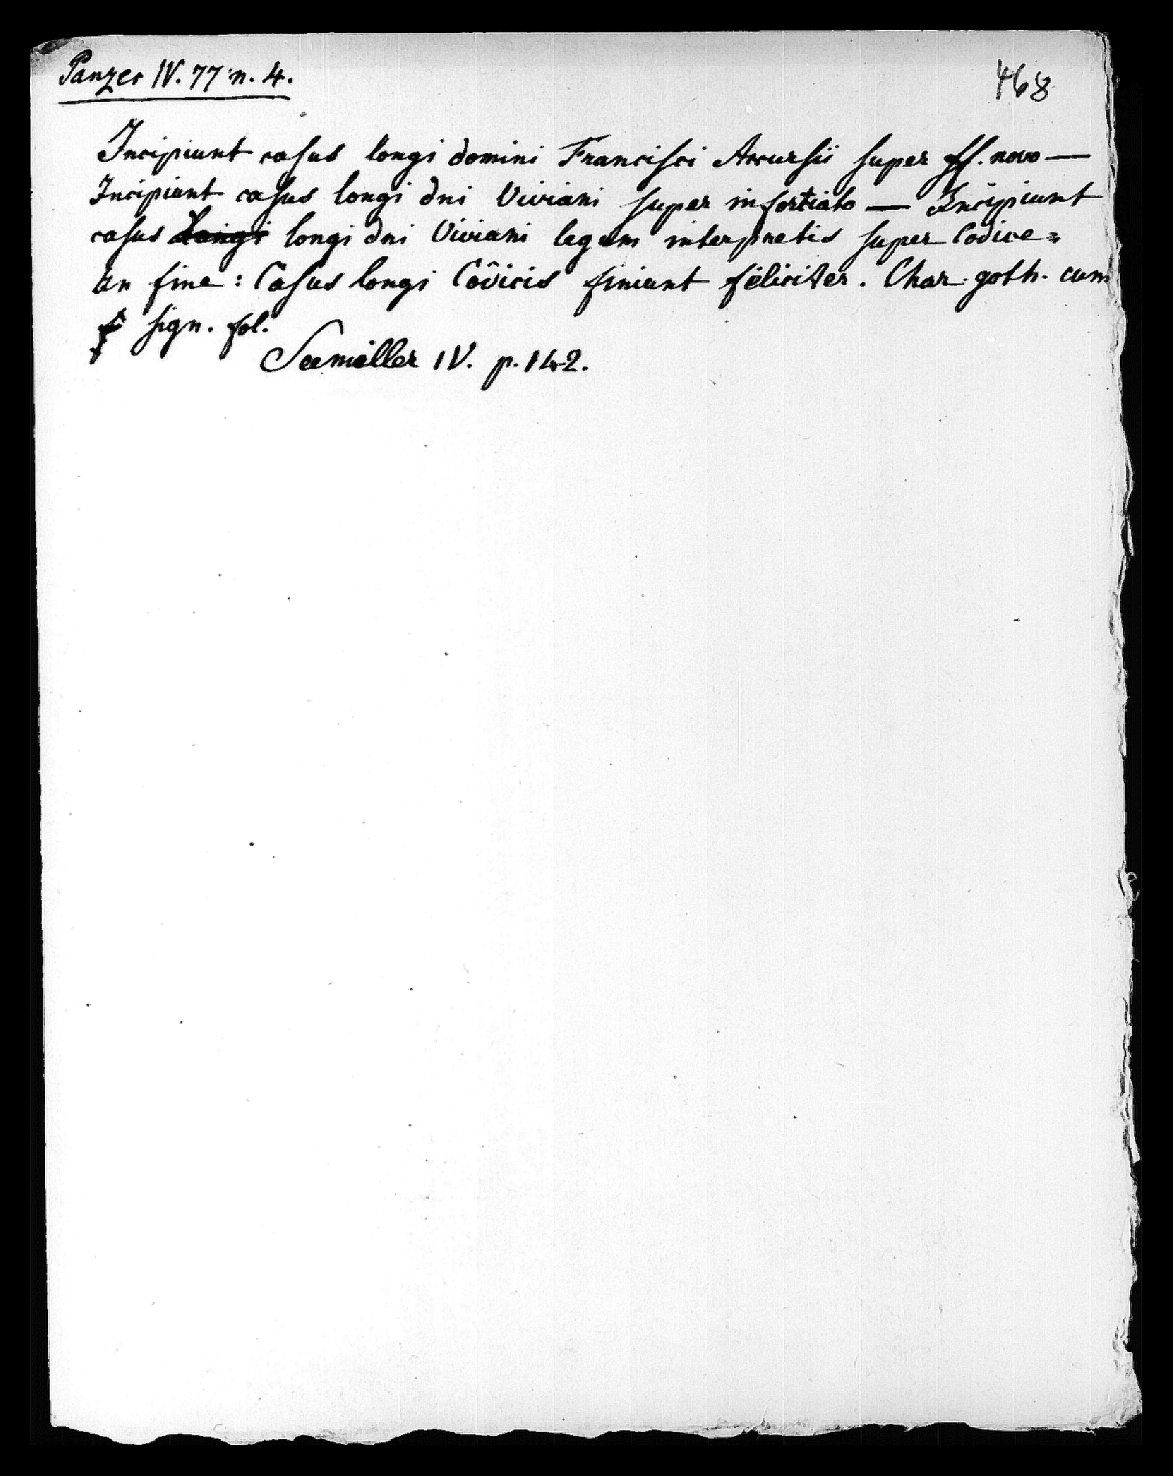 Panzer IV. 77 n. 4.
468
Incipiunt casus longi domini Francisci Accursii super ff. novo —
Incipiunt casus longi dni Viviani super infortiato — Incipiunt
casus longi dni Viviani legum interpretis super Codice =
In fine: Casus longi Codicis finiunt feliciter. Char. goth. cum
sign. fol.
Seemiller IV. p. 142.